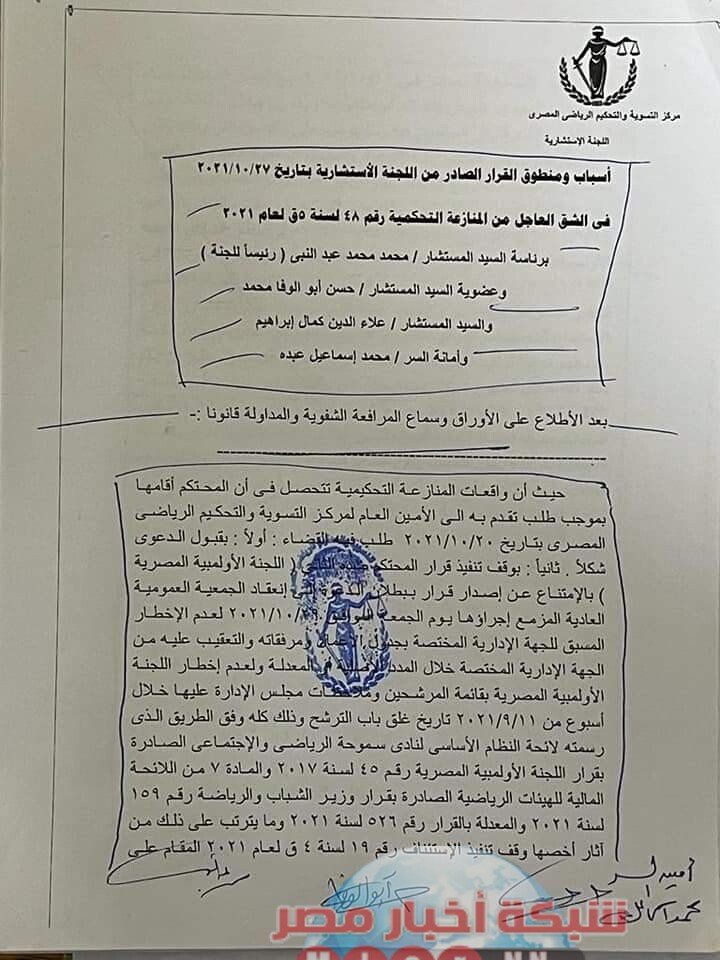 مركز التسوية والتحكيم الرياضى المصرى
اللجنة الإستشارية
أسباب ومنطوق القرار الصادر من اللجنة الأستشارية بتاريخ ٢٠٢١/١٠/٢٧
فى الشق العاجل من المنازعة التحكمية رقم ٤٨ لسنة ٥ق لعام ٢٠٢١
برئاسة السيد المستشار / محمد محمد عبد النبى ( رئيساً للجنة )
وعضوية السيد المستشار / حسن أبو الوفا محمد
والسيد المستشار / علاء الدين كمال إبراهيم
وأمانة السر / محمد إسماعيل عبده
بعد الأطلاع على الأوراق وسماع المرافعة الشفوية والمداولة قانونا :-
حيث أن واقعات المنازعة التحكيمية تتحصل فى أن المحتكم أقامها
بموجب طلب تقدم به الى الأمين العام لمركز التسوية والتحكيم الرياضى
المصرى بتاريخ ٢٠٢١/١٠/٢٠ طلب فيه القضاء : أولاً : بقبول الدعوى
شكلاً . ثانياً : بوقف تنفيذ قرار المحتكم ضده الثانى ( اللجنة الأولمبية المصرية
) بالإمتناع عن إصدار قرار ببطلان الدعوة إلى إنعقاد الجمعية العمومية
العادية المزمع إجراؤها يوم الجمعة الموافق ٢٠٢١/١٠/٢٩ لعدم الإخطار
المسبق للجهة الإدارية المختصة بجدول الأعمال ومرفقاته والتعقيب عليه من
الجهة الإدارية المختصة خلال المدد الأصلية والمعدلة ولعدم إخطار اللجنة
الأولمبية المصرية بقائمة المرشحين وملاحظات مجلس الإدارة عليها خلال
أسبوع من ٢٠٢١/٩/١١ تاريخ غلق باب الترشح وذلك كله وفق الطريق الذى
رسمته لائحة النظام الأساسى لنادى سموحة الرياضى والإجتماعى الصادرة
بقرار اللجنة الأولمبية المصرية رقم ٤٥ لسنة ٢٠١٧ والمادة ٧ من اللائحة
المالية للهيئات الرياضية الصادرة بقرار وزير الشباب والرياضة رقم ١٥٩
لسنة ٢٠٢١ والمعدلة بالقرار رقم ٥٢٦ لسنة ٢٠٢١ وما يترتب على ذلك من
آثار أخصها وقف تنفيذ الإستئناف رقم ١٩ لسنة ٤ ق لعام ٢٠٢١ المقام على
أمين السر
شبكة أخبار مصر